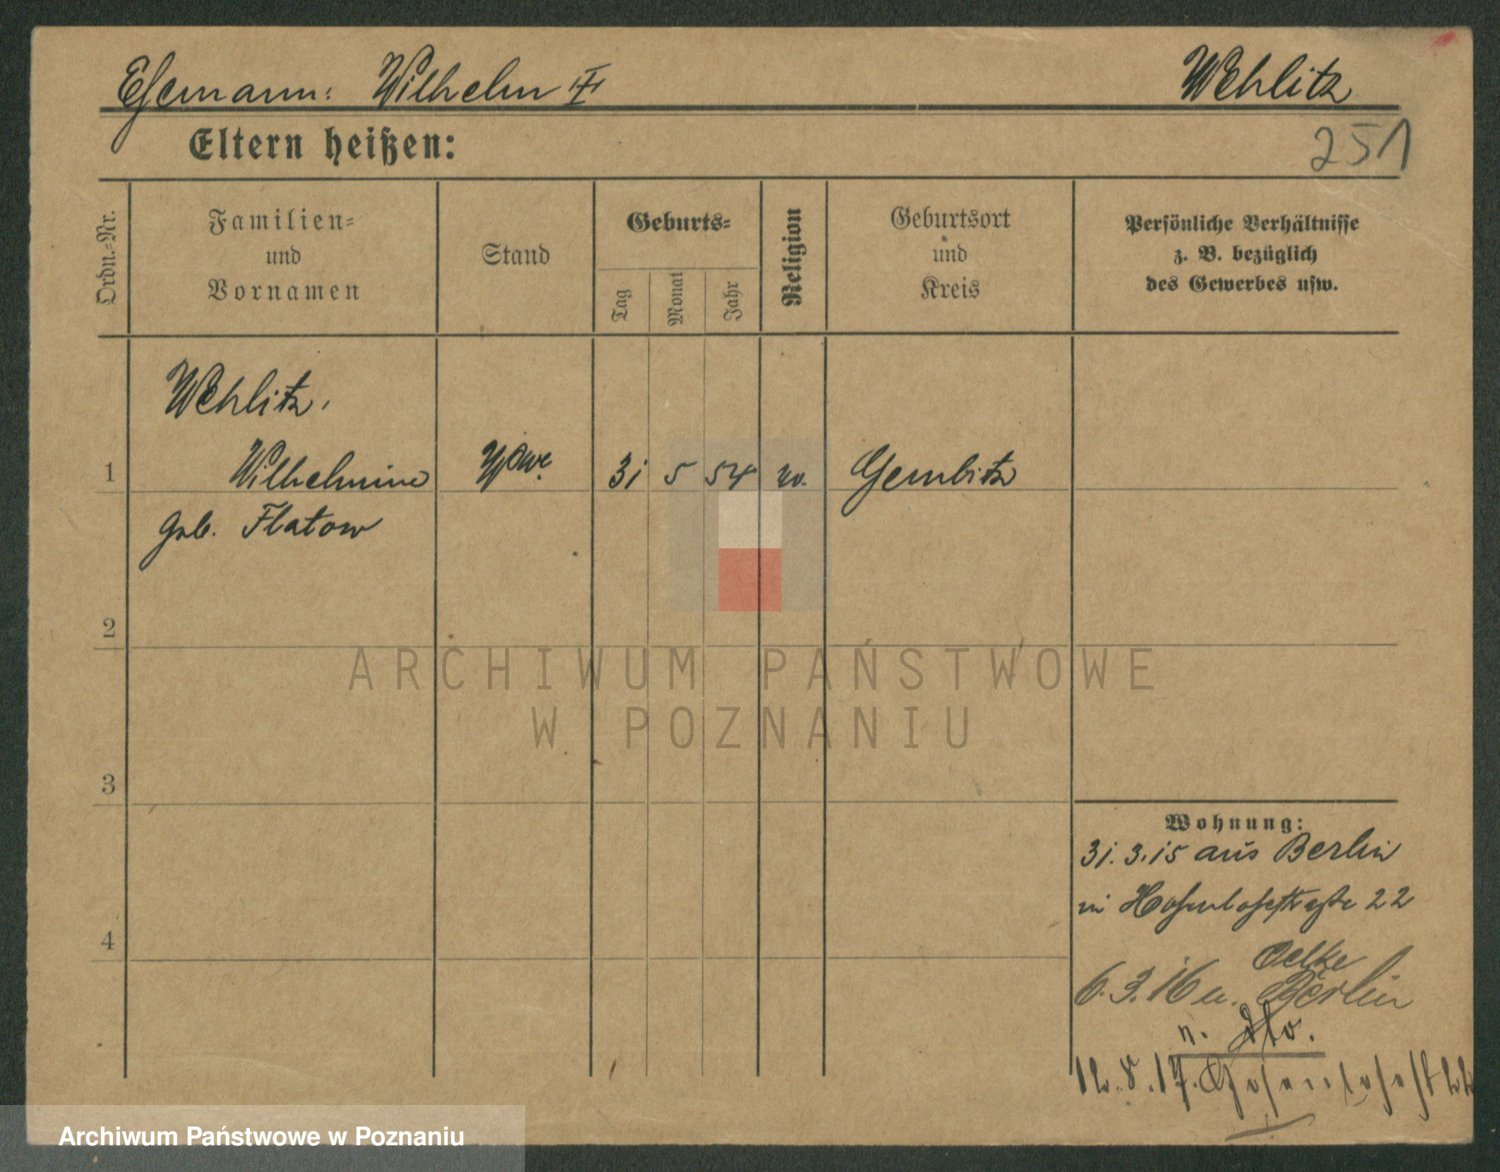 Ehemann: Wilhelm † Wehlitz
Eltern heißen: 251
Ordn.-Nr.
Familien-
und
Vornamen
Stand
Geburts-
Tag
Monat
Jahr
Religion
Geburtsort
und
Kreis
Persönliche Verhältnisse
z. B. bezüglich
des Gewerbes usw.
Wehlitz,
1 Wilhelmine Wwe. 31 5 54 ev. Gembitz
geb. Flatow
2
3
4
Wohnung:
31.3.15 aus Berlin
in Hohenlohestraße 22
Oelke
6.3.16 n. Berlin
n. dto.
12.8.17. Hohenlohestr 22
ARCHIWUM PAŃSTWOWE
W POZNANIU
Archiwum Państwowe w Poznaniu